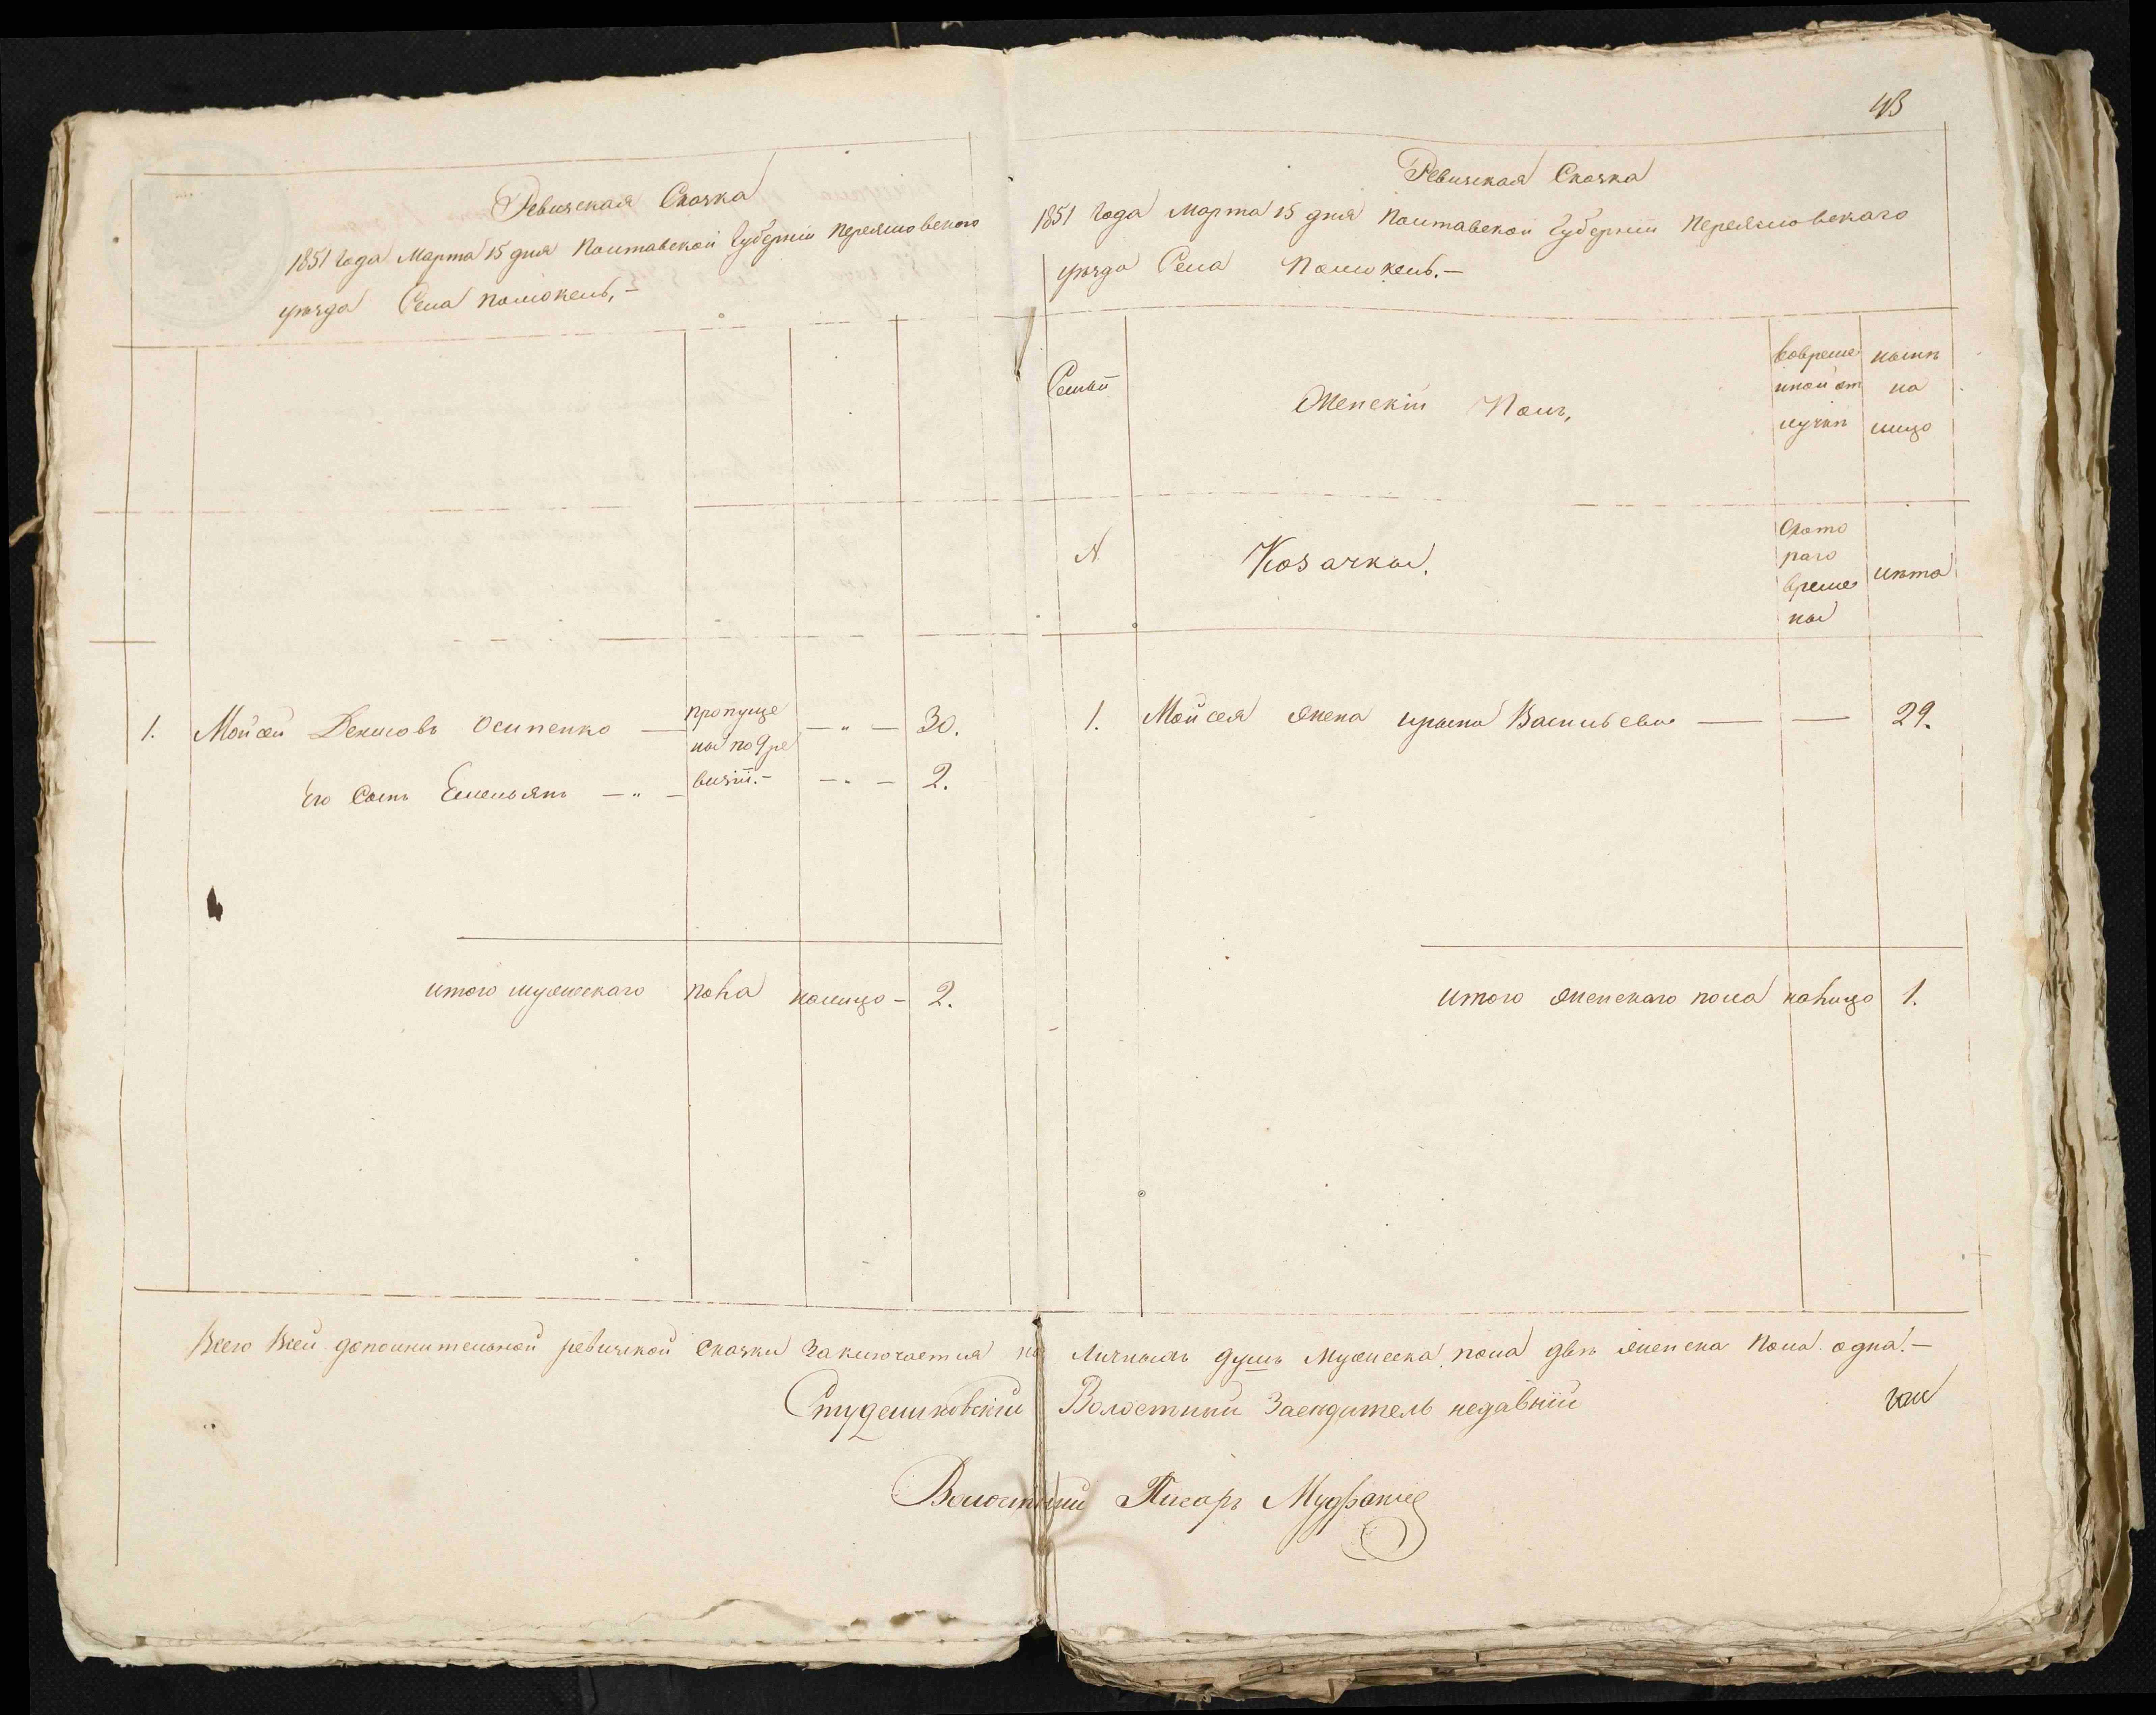 Ревизская Сказка
1851 Года Марта 15 дня Полтавской Губерніи Переяловского
уѣзда Села Помокель,-
1. Мойсей Денисовъ Осипенко — пропуще — " — 30.
ны по 9 ре
Его Сынъ Емельянъ — " — визіи.- — " — 2.
итого мужескаго пола налицо - 2.
43
Ревизская Сказка
1851 Года Марта 15 дня Полтавской Губерніи Переяловскаго
уѣзда Села Помокель.-
Семьи
Женскій Полъ,
Вовреме
нной от
лучкѣ
нынѣ
на
лицо
№
Козачки.
Ското
раго
време
ны
лѣта
1. Мойсея жена Ирына Васильева — — 29.
итого женскаго пола налицо 1.
Всего Всей дополнительной ревизкой сказки Заключается на Личныхъ душъ Мужеска пола двѣ женска пола одна.-
Студениковскій Волостный Заседатель недавній
Волостный Писарь